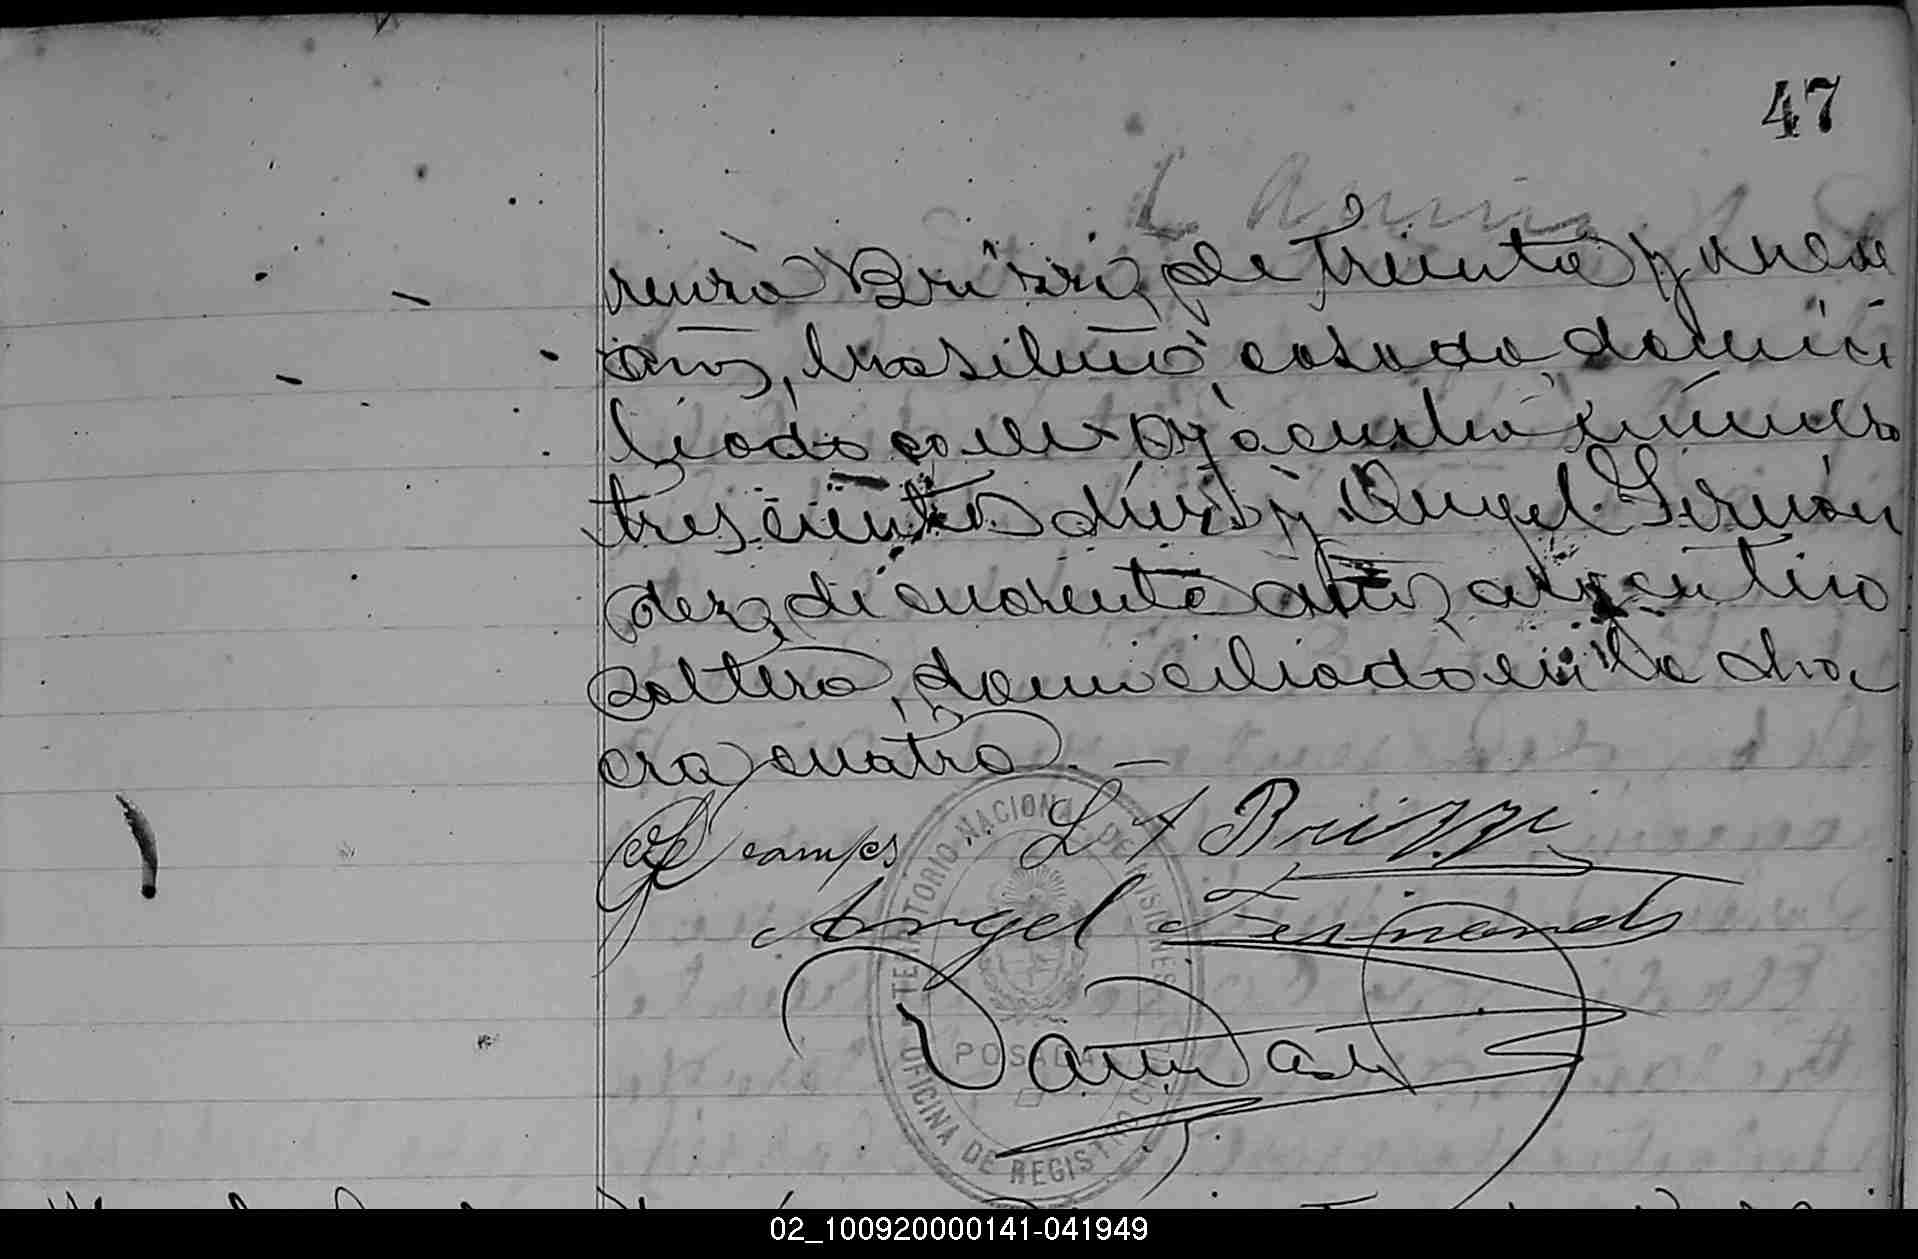 47
renzo Brizzi, de treinta y nueve
años, brasilero, casado, domici
liado calle Ayacucho número
trescientos diez y Angel Fernán
dez, de cuarenta años, argentino
soltero, domiciliado en la cha
cra cuatro. —
campos L A Brizzi
Angel Fernandez
TERRITORIO NACIONAL DE MISIONES
POSADAS
OFICINA DE REGISTRO CIVIL
02_100920000141-041949